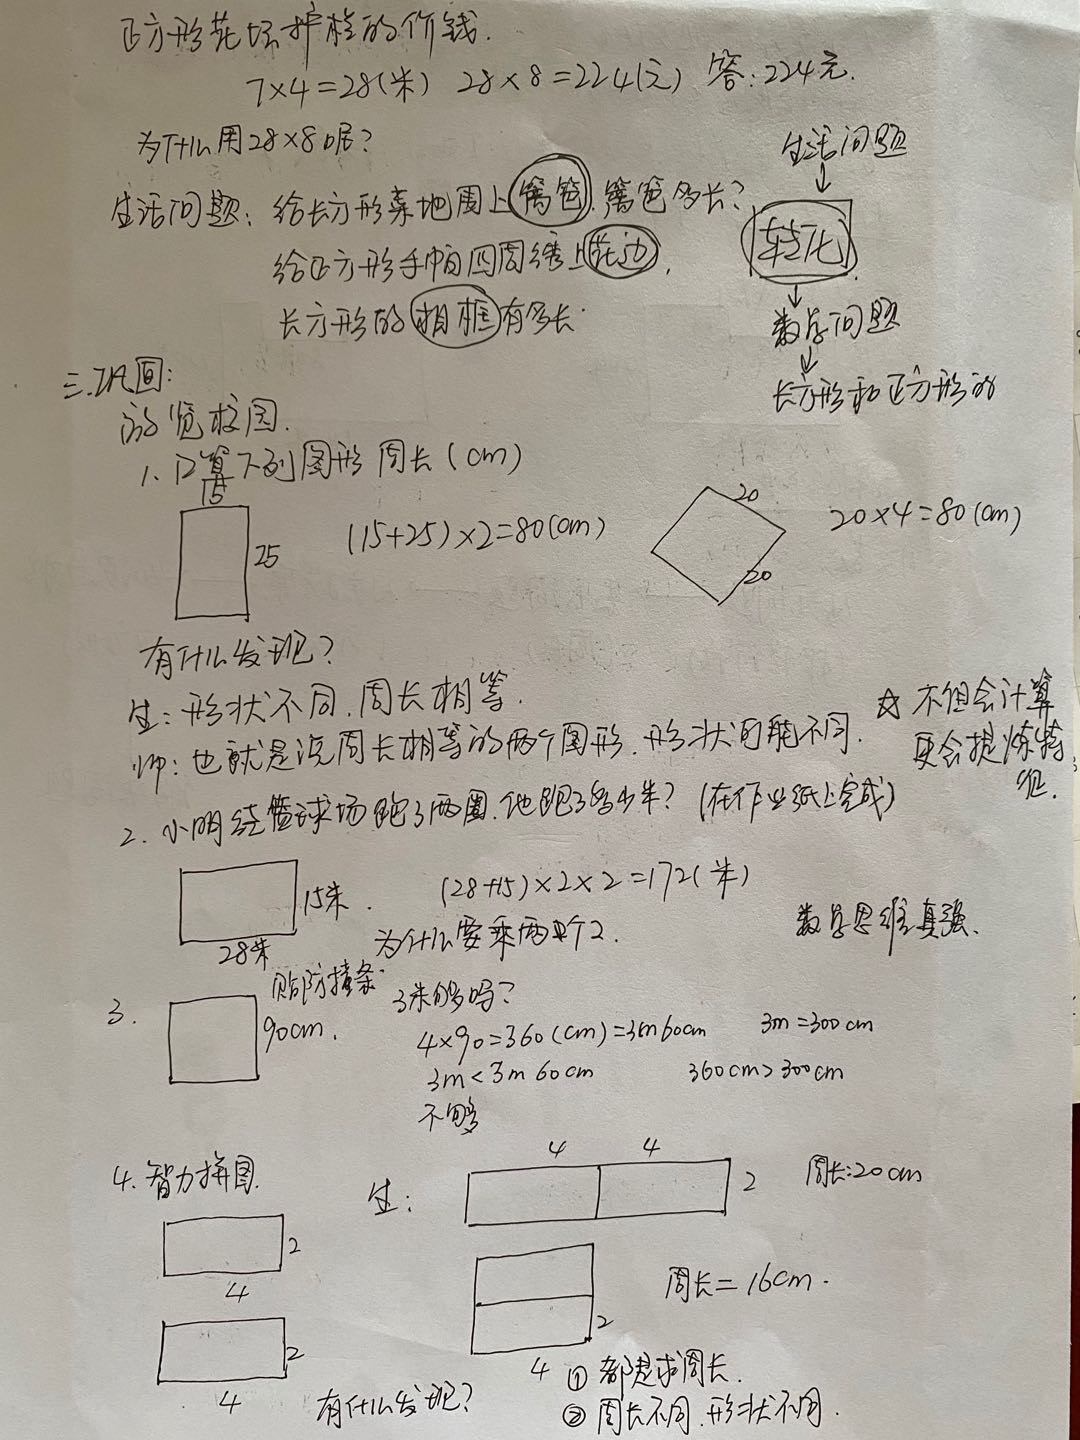 正方形花坛护栏的价钱.
7×4=28(米) 28×8=224(元) 答:224元.
为什么用28×8呢?
生活问题
生活问题: 给长方形菜地围上篱笆.篱笆多长?
转化
给正方形手帕四周绣上花边.
长方形的相框有多长.
数学问题
长方形和正方形的
三.巩固:
游览校园.
1.口算下列图形周长(cm)
15
25
(15+25)×2=80(cm)
20
20
20×4=80(cm)
有什么发现?
生:形状不同.周长相等.
师:也就是说周长相等的两个图形.形状可能不同.
☆不但会计算
更会提炼特
征.
2.小明绕篮球场跑了两圈.他跑了多少米?(在作业纸上完成)
15米.
28米
(28+15)×2×2=172(米)
为什么要乘两个2.
数学思维真强.
3.
贴防撞条.
90cm.
3米够吗?
4×90=360(cm)=3m60cm 3m=300cm
3m<3m60cm 360cm>300cm
不够
4.智力拼图.
2
4
2
4
生:
4 4
2
周长:20cm
2
4
周长=16cm.
有什么发现?
①都是求周长.
②周长不同.形状不同.